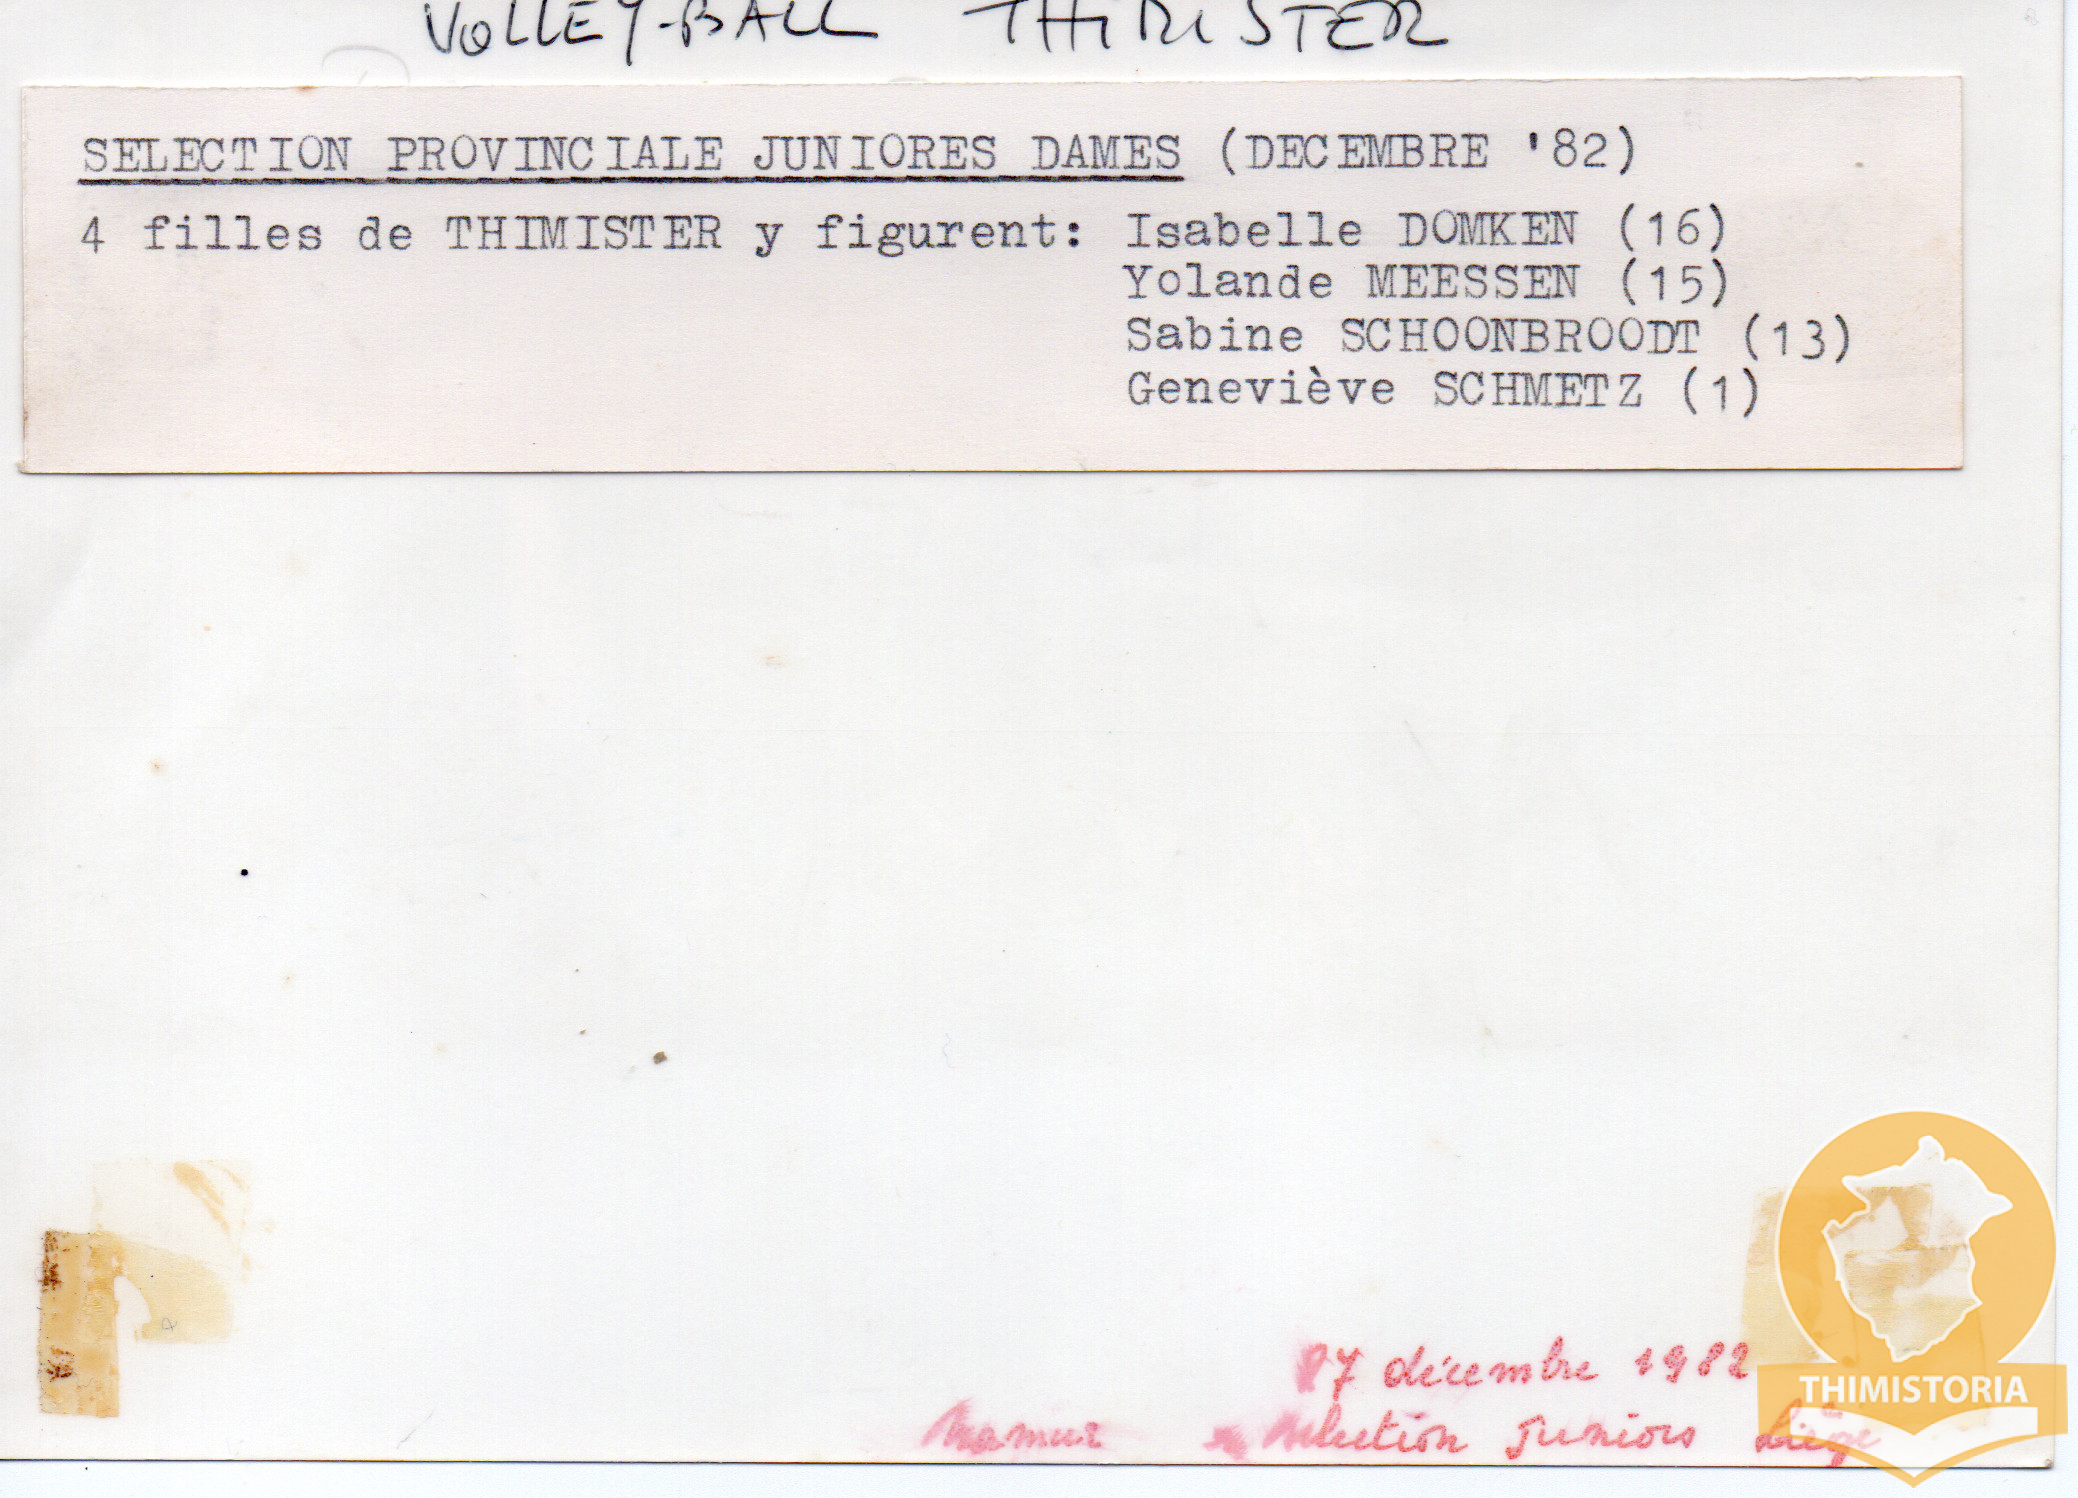 VOLLEY-BALL THIMISTER
SELECTION PROVINCIALE JUNIORES DAMES (DECEMBRE '82)
4 filles de THIMISTER y figurent: Isabelle DOMKEN (16)
Yolande MEESSEN (15)
Sabine SCHOONBROODT (13)
Geneviève SCHMETZ (1)
décembre 1982
Namur sélection Juniors Liège
THIMISTORIA